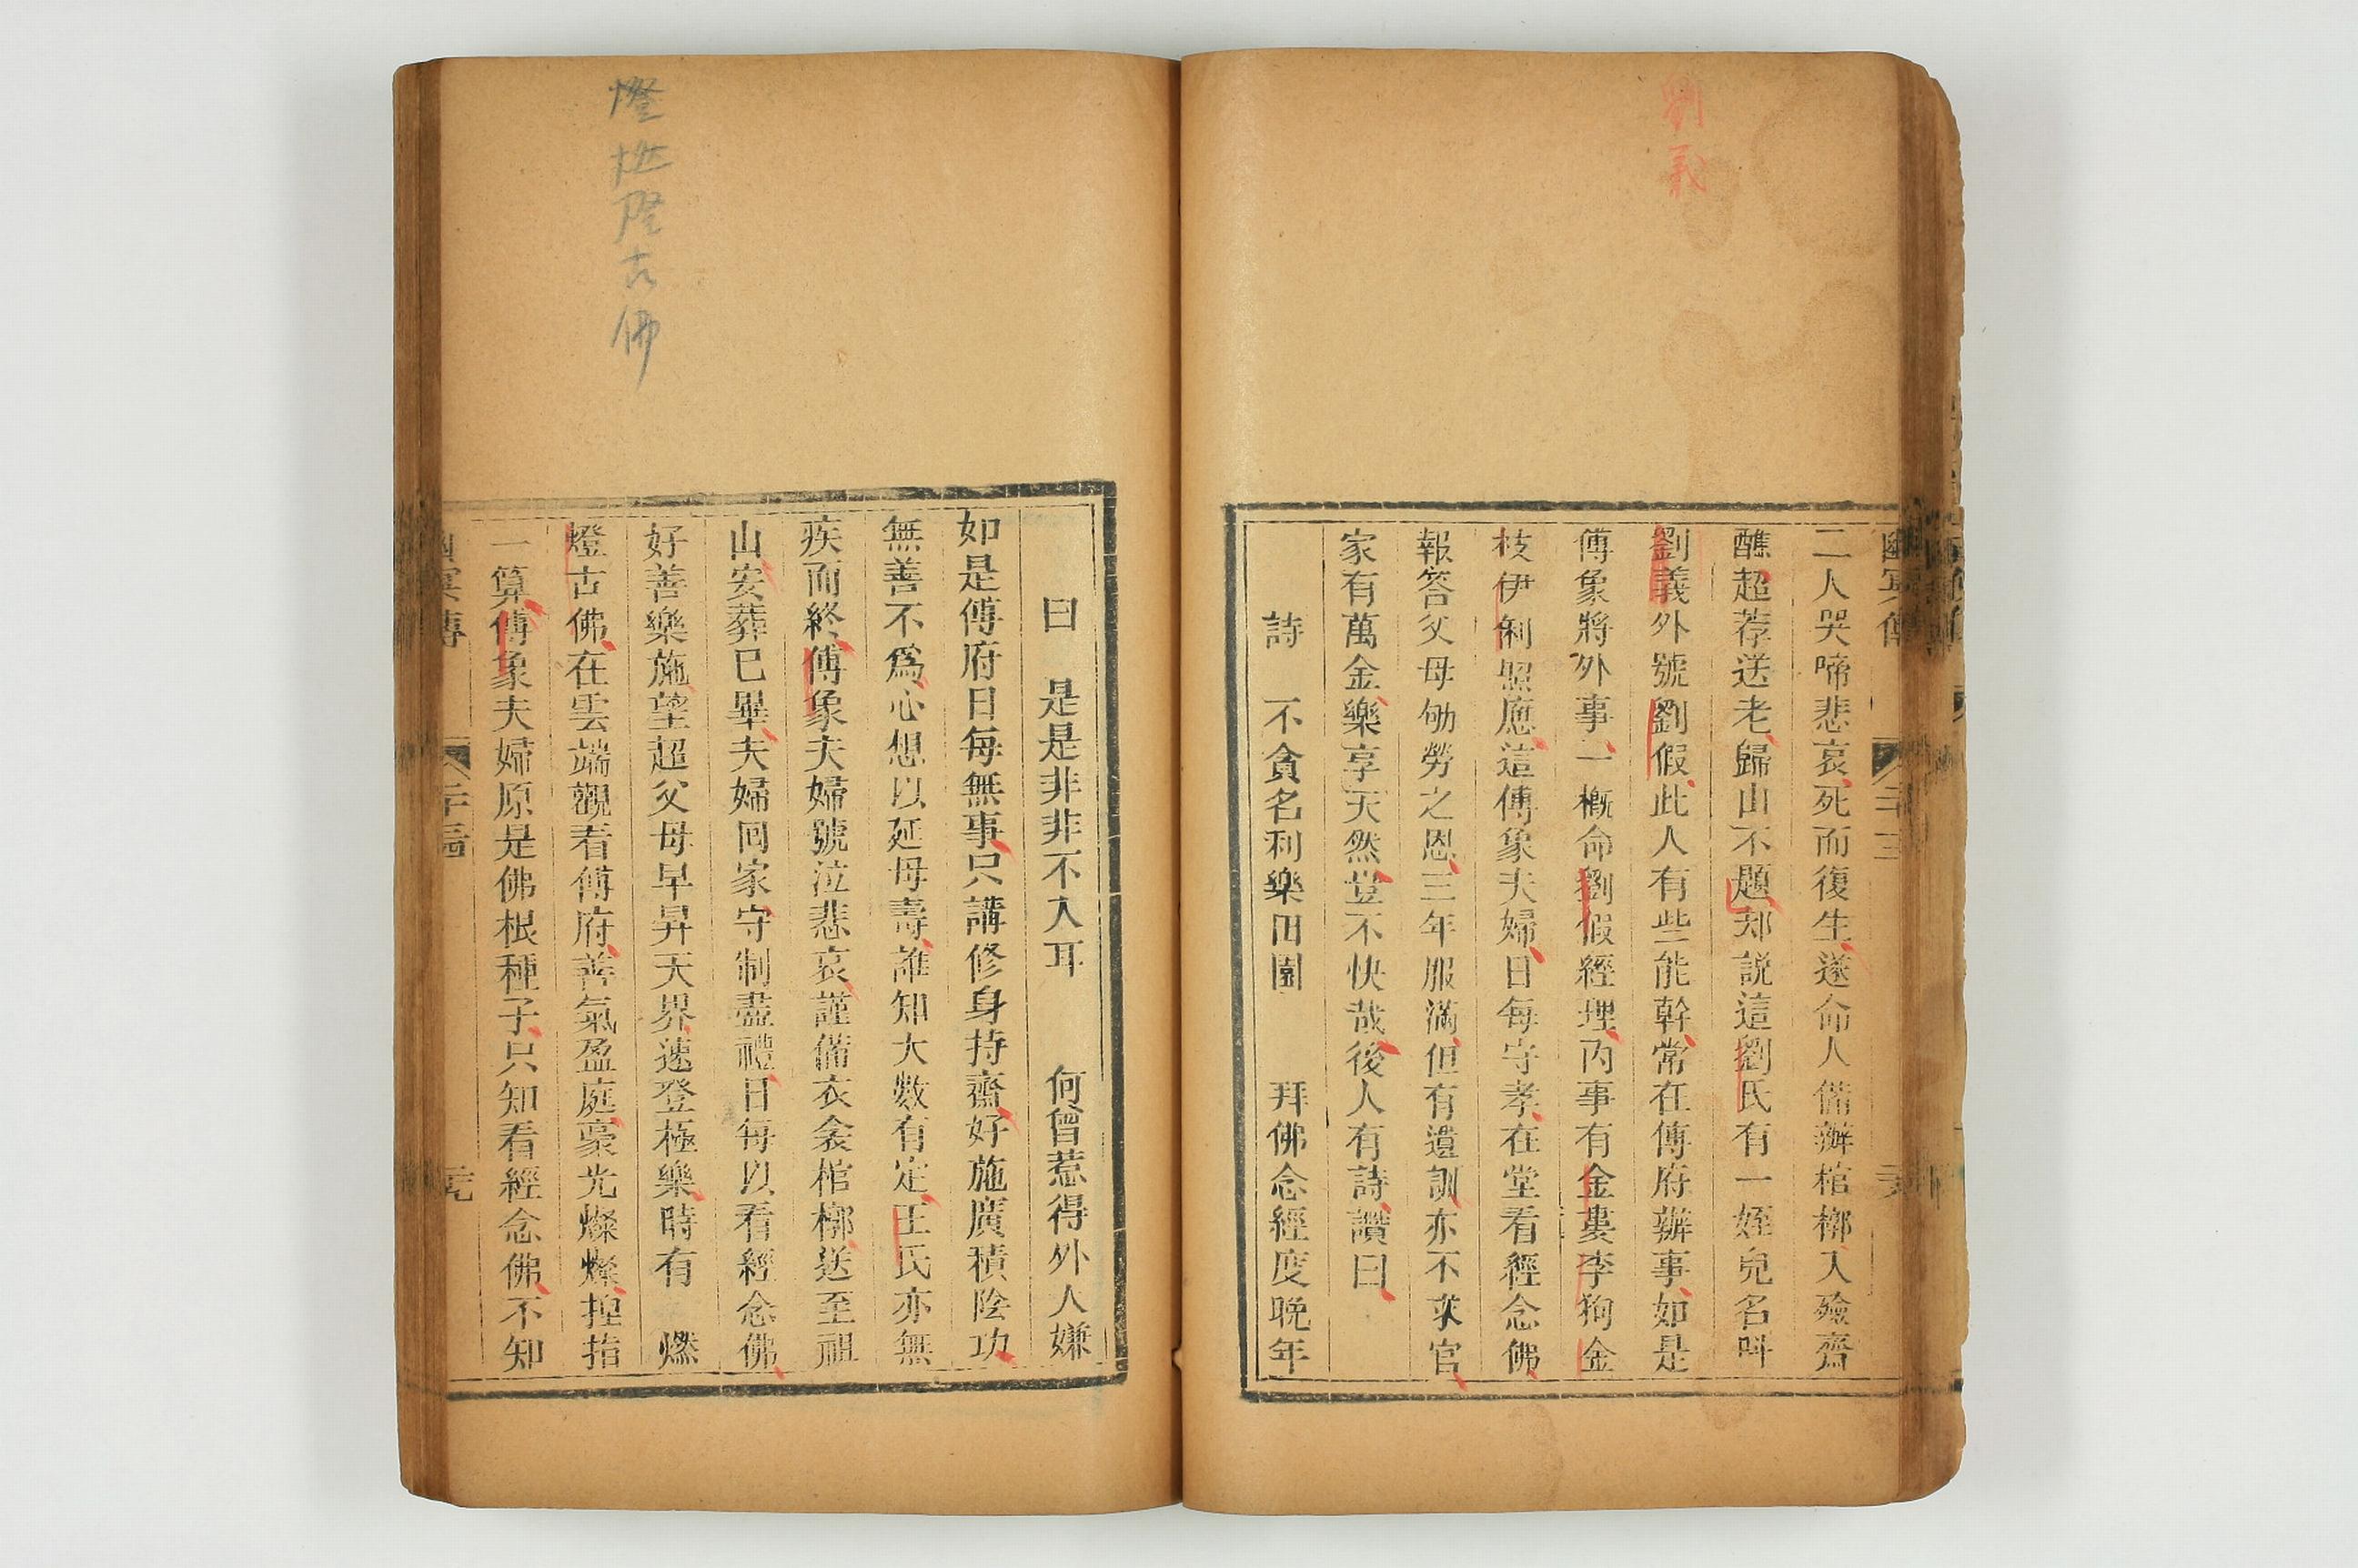 劉義
幽冥傳
二人哭啼悲哀死而復生遂命人備辦棺槨入殮齋
醮超荐送老歸山不題却説這劉氏有一姪兒名呌
劉義外號劉假此人有些能幹常在傅府辦事如是
傅象將外事一概命劉假經理內事有金婁李狗金
枝伊俐照應這傅象夫婦日每守孝在堂看經念佛
報答父母劬勞之恩三年服滿但有遺訓亦不求官
家有萬金樂享天然豈不快哉後人有詩讚曰
詩 不貪名利樂田園 拜佛念經度晚年
燈古佛
曰 是是非非不入耳 何曾惹得外人嫌
如是傅府日每無事只講修身持齋好施廣積陰功
無善不爲心想以延母壽誰知大數有定王氏亦無
疾而終傅象夫婦號泣悲哀謹備衣衾棺槨送至祖
山安葬巳畢夫婦回家守制盡禮日每以看經念佛
好善樂施望超父母早昇天界速登極樂時有 燃
燈古佛在雲端觀看傅府善氣盈庭豪光燦燦揑指
一算傅象夫婦原是佛根種子只知看經念佛不知